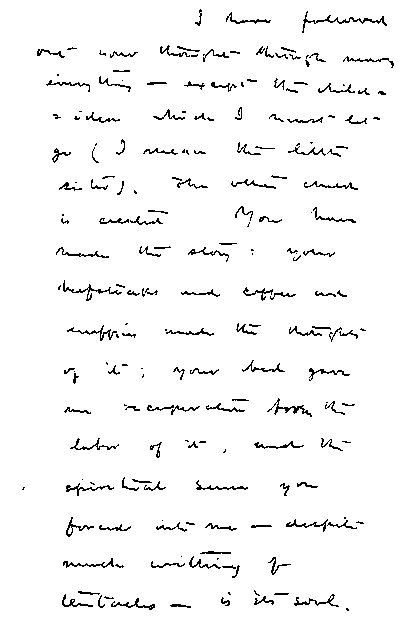 I have followed
out your thought through nearly
everything — except the child-
idea which I must let
go (I mean the little
sister). The other child
is created You have
made the story: your
beefsteaks and coffee and
muffins made the thought
of it; your bed gave
me recuperation from the
labor of it, and the
spiritual sense you
forced into me — despite
much writhing of
tentacles — is its soul.